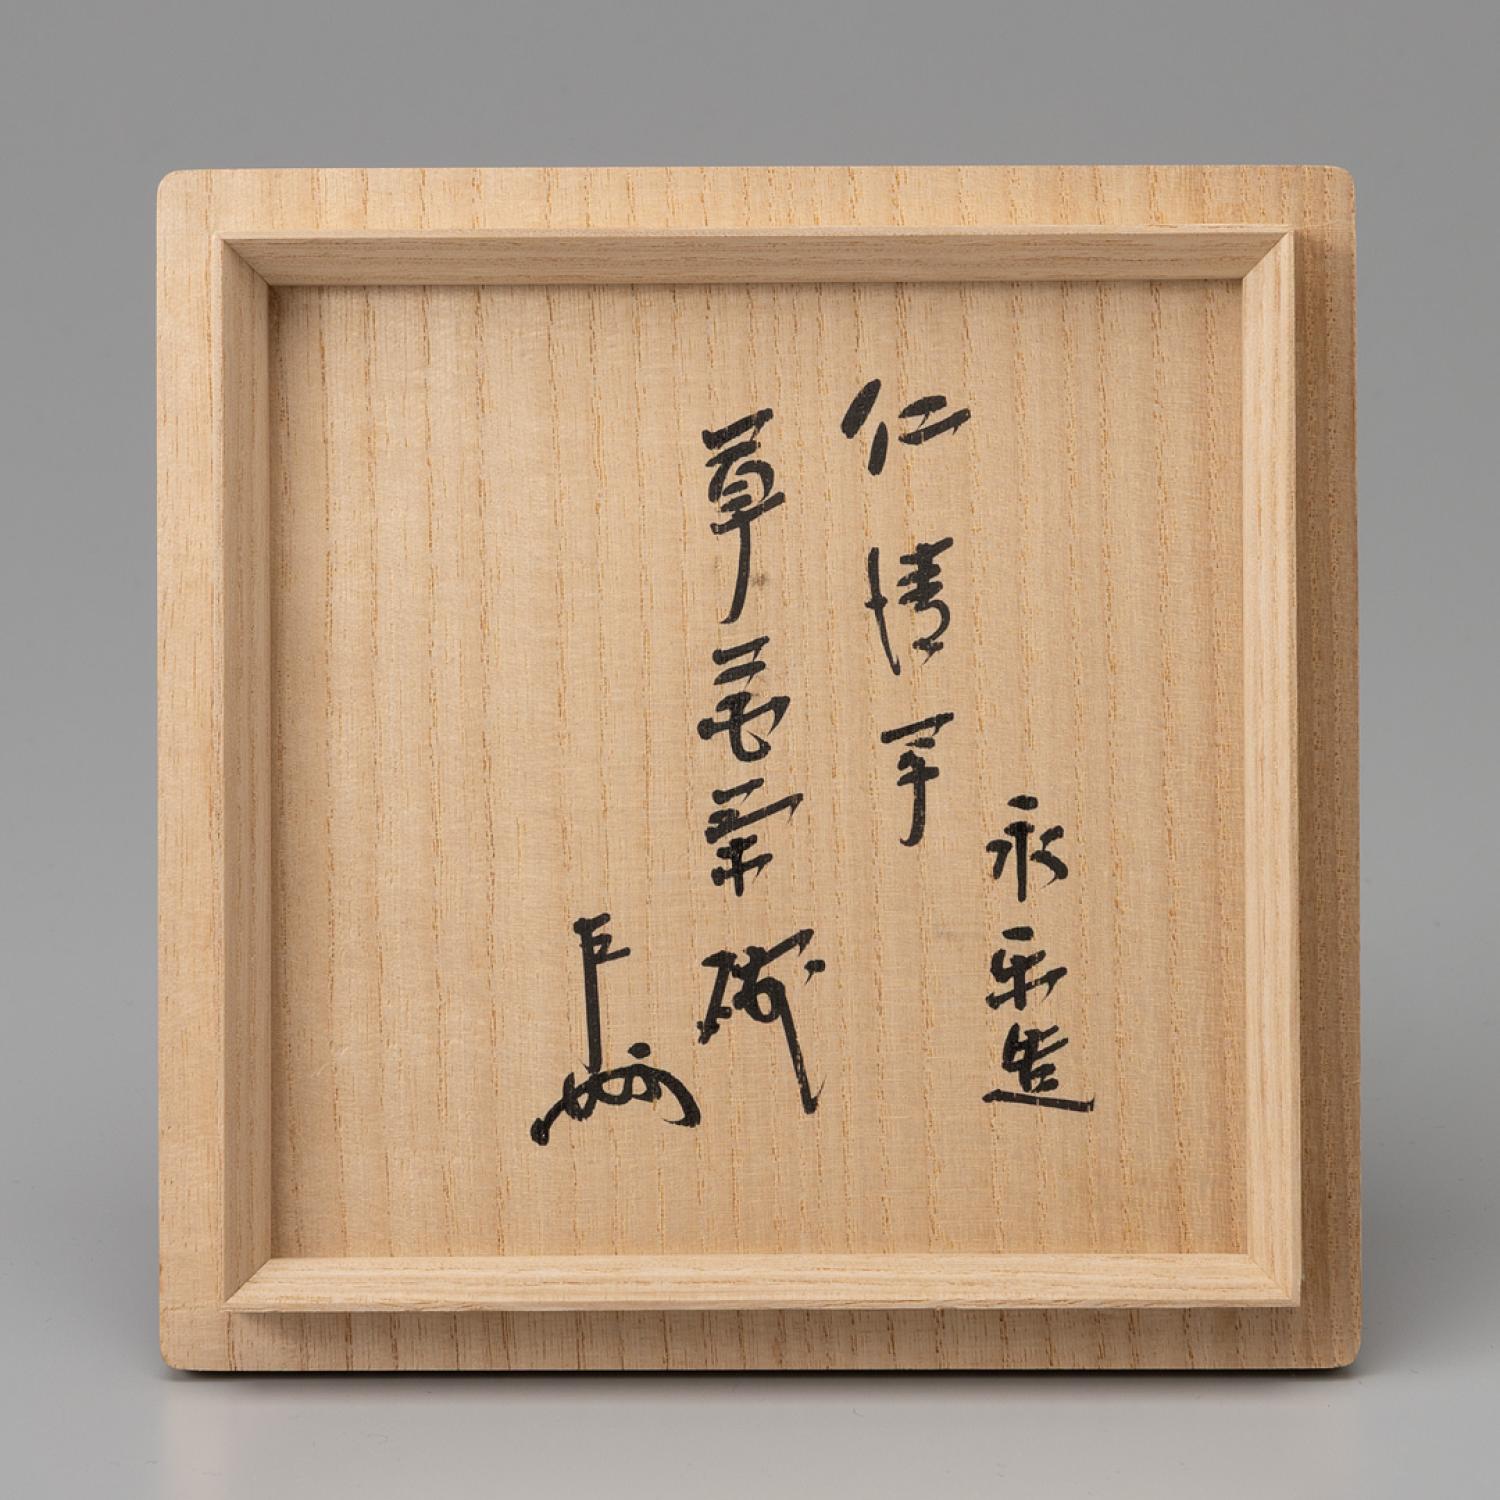 永楽造
仁清写
草花茶碗